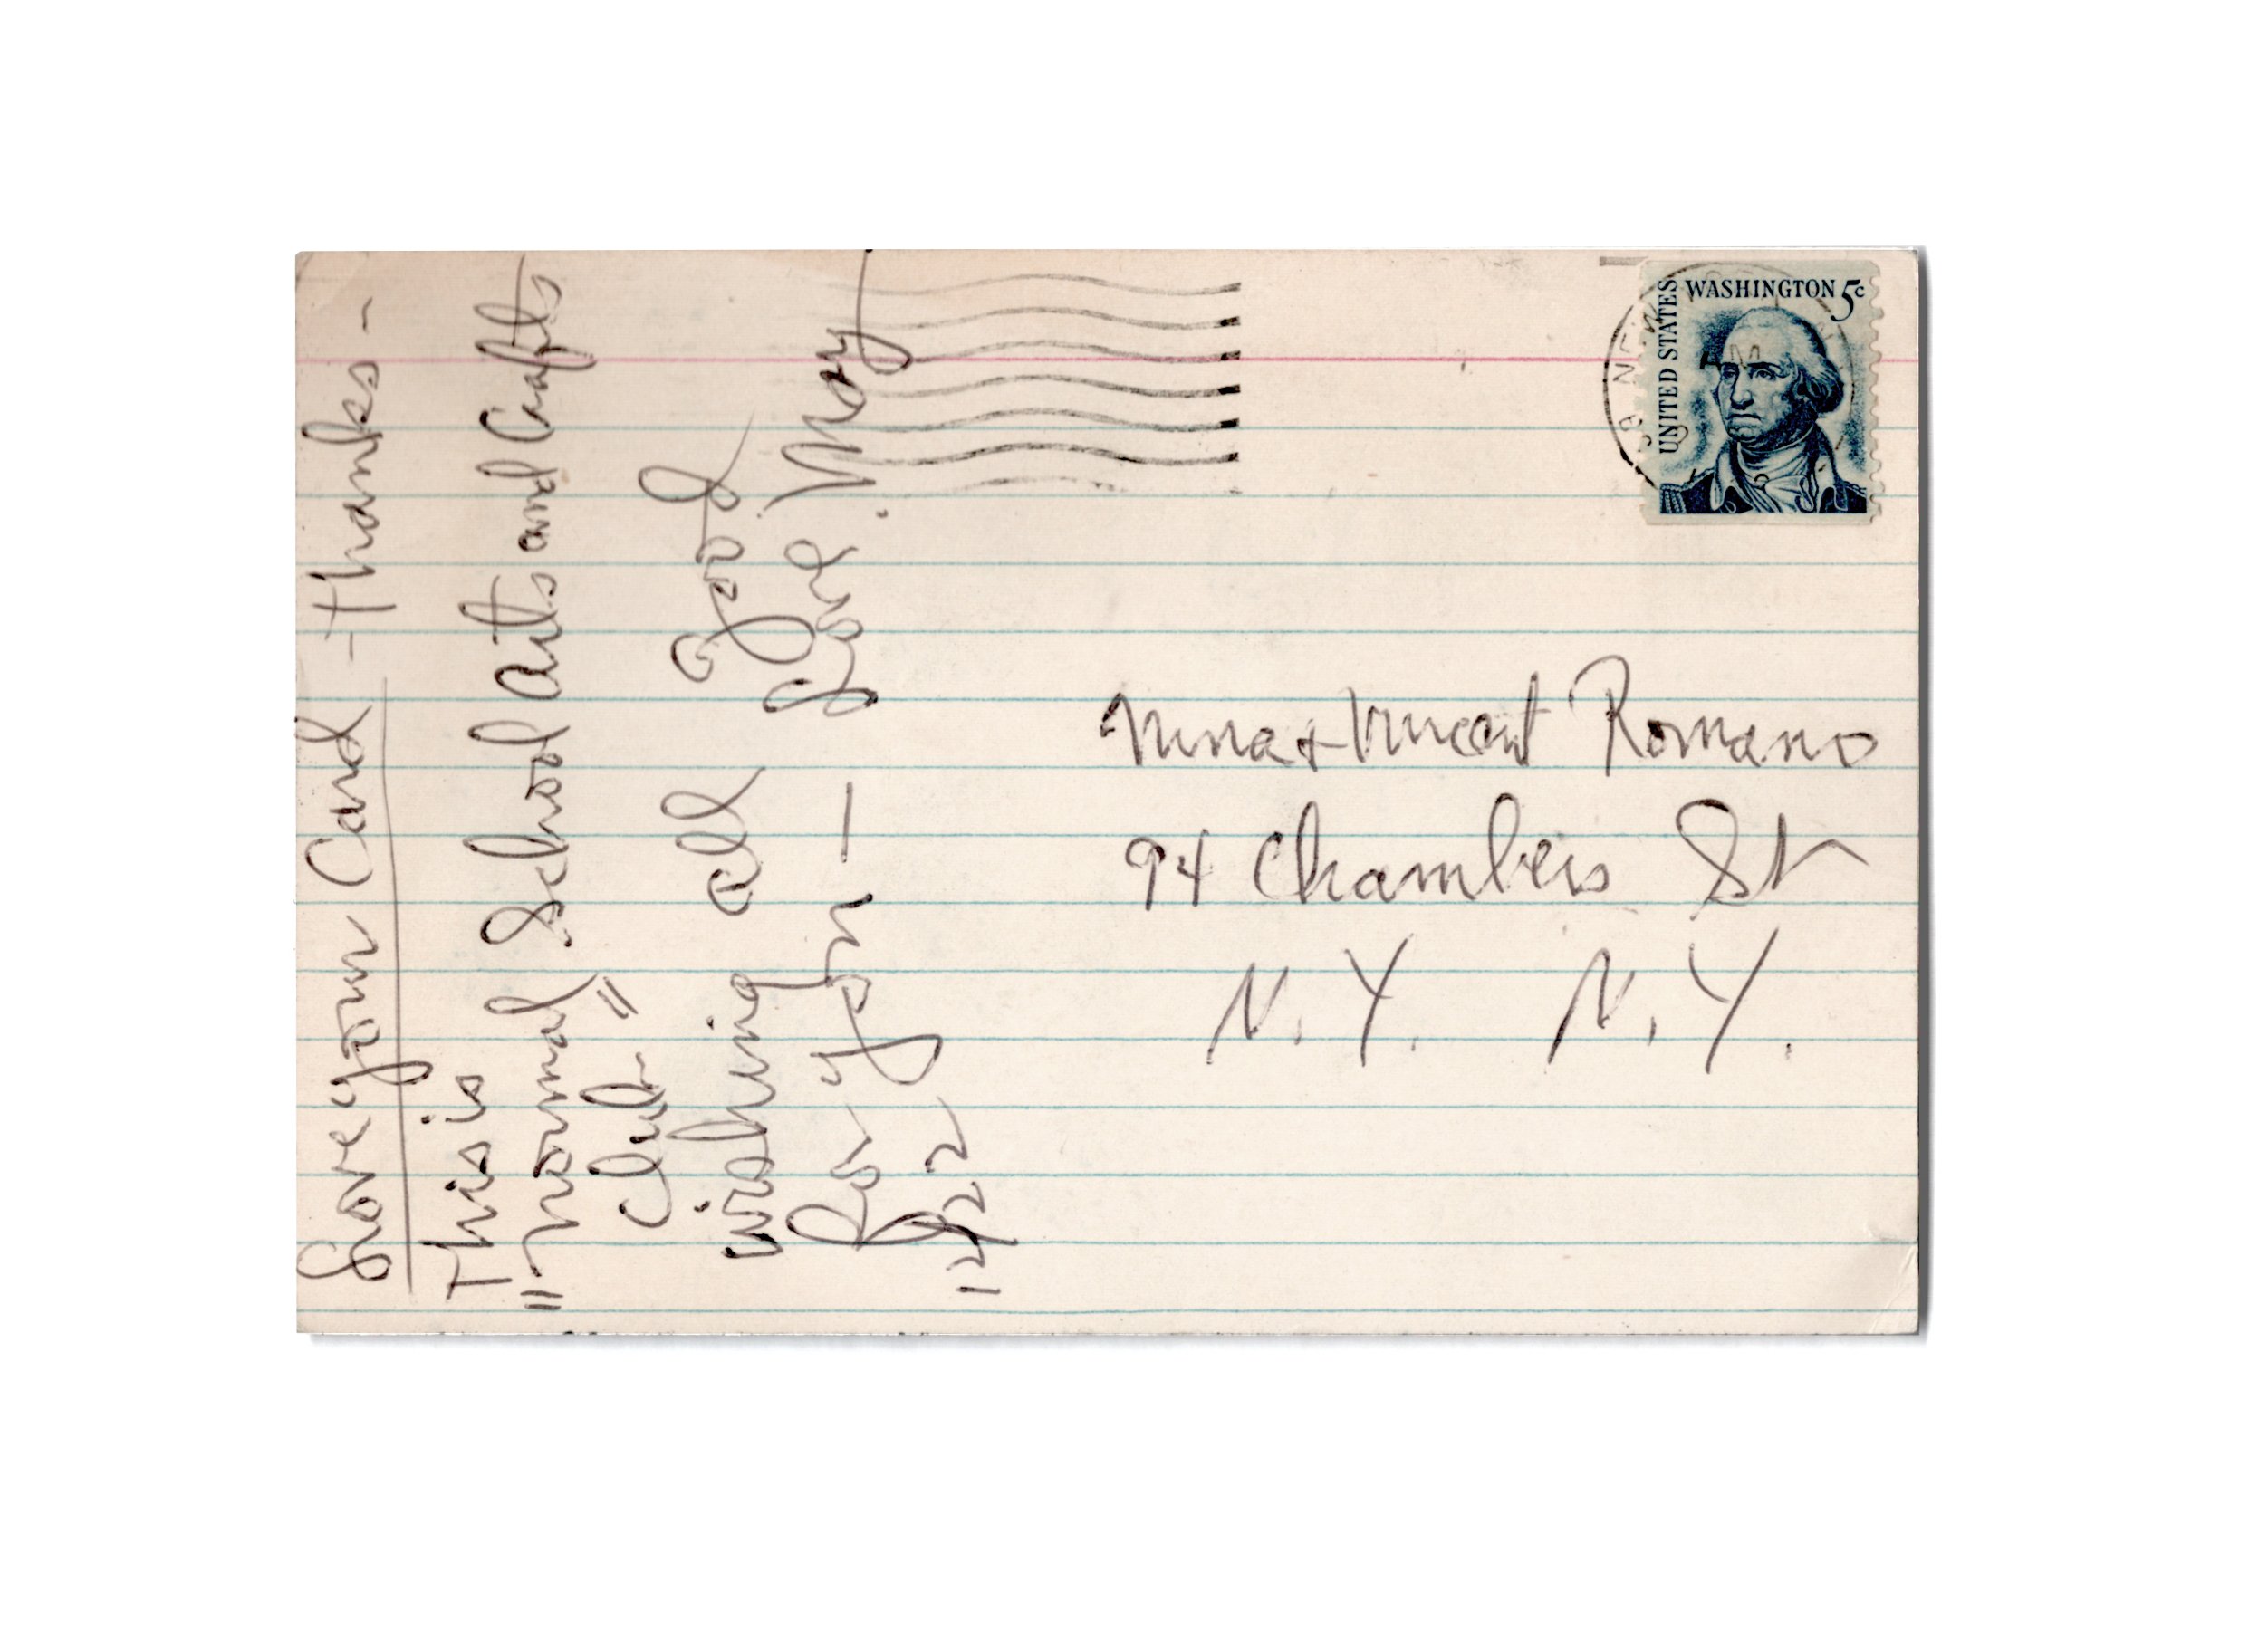 Love your Card - Thanks -
This is
"normal School Arts and Crafts
Club"
wishing all good
for you - Love May
12/22
UNITED STATES
WASHINGTON 5c
Nina + Vincent Romano
94 Chambers St
N.Y. N.Y.